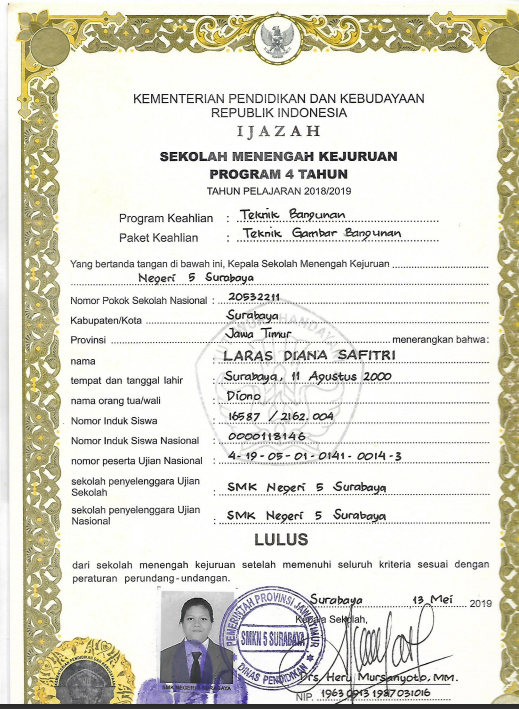 KEMENTERIAN PENDIDIKAN DAN KEBUDAYAAN
REPUBLIK INDONESIA
IJAZAH
SEKOLAH MENENGAH KEJURUAN
PROGRAM 4 TAHUN
TAHUN PELAJARAN 2018/2019
Program Keahlian : Teknik Bangunan
Paket Keahlian : Teknik Gambar Bangunan
Yang bertanda tangan di bawah ini, Kepala Sekolah Menengah Kejuruan
Negeri 5 Surabaya
Nomor Pokok Sekolah Nasional : 20532211
Kabupaten/Kota Surabaya
Provinsi Jawa Timur menerangkan bahwa:
nama : LARAS DIANA SAFITRI
tempat dan tanggal lahir : Surabaya, 11 Agustus 2000
nama orang tua/wali : Diono
Nomor Induk Siswa : 16587 / 2162.004
Nomor Induk Siswa Nasional : 0000113146
nomor peserta Ujian Nasional : 4-19-05-01-0141-0014-3
sekolah penyelenggara Ujian
Sekolah : SMK Negeri 5 Surabaya
sekolah penyelenggara Ujian
Nasional : SMK Negeri 5 Surabaya
LULUS
dari sekolah menengah kejuruan setelah memenuhi seluruh kriteria sesuai dengan
peraturan perundang-undangan.
Surabaya 13 Mei 2019
Kepala Sekolah,
PEMERINTAH PROVINSI JAWA TIMUR
SMKN 5 SURABAYA
DINAS PENDIDIKAN
SMK NEGERI 5 SURABAYA
Drs. Heru Mursanyoto, MM.
NIP. 1963 0913 1987 031016